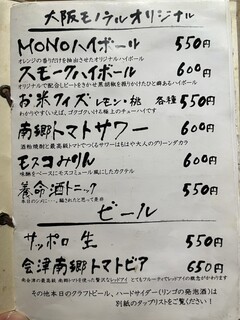 大阪モノラルオリジナル
MONOハイボール 550円
オレンジの香りだけを抽出させたオリジナルハイボール
スモークハイボール 600円
オリジナルで配合しピートをきかせ黒胡椒を振りかけたひと癖あるハイボール
お米フィズ レモン・桃 各種 550円
わかりやすくいえば、ゴクゴクいける極上のチューハイです
南郷トマトサワー 600円
酒粕焼酎と最高級トマトでつくるサワーはもはや大人のグリーンダカラ
モスコみりん 600円
味醂をベースにモスコミュール風にしたカクテル
養命酒トニック 550円
本日のシメに・・・騙されたと思って是非
ビール
サッポロ 生 550円
会津南郷トマトビア 650円
南会津の最高級 南郷トマトを使った贅沢なレッドアイ とてもフルーティでレッドアイの概念がかわります
その他本日のクラフトビール、ハードサイダー(リンゴの発泡酒)は
別紙のタップリストをご覧ください!